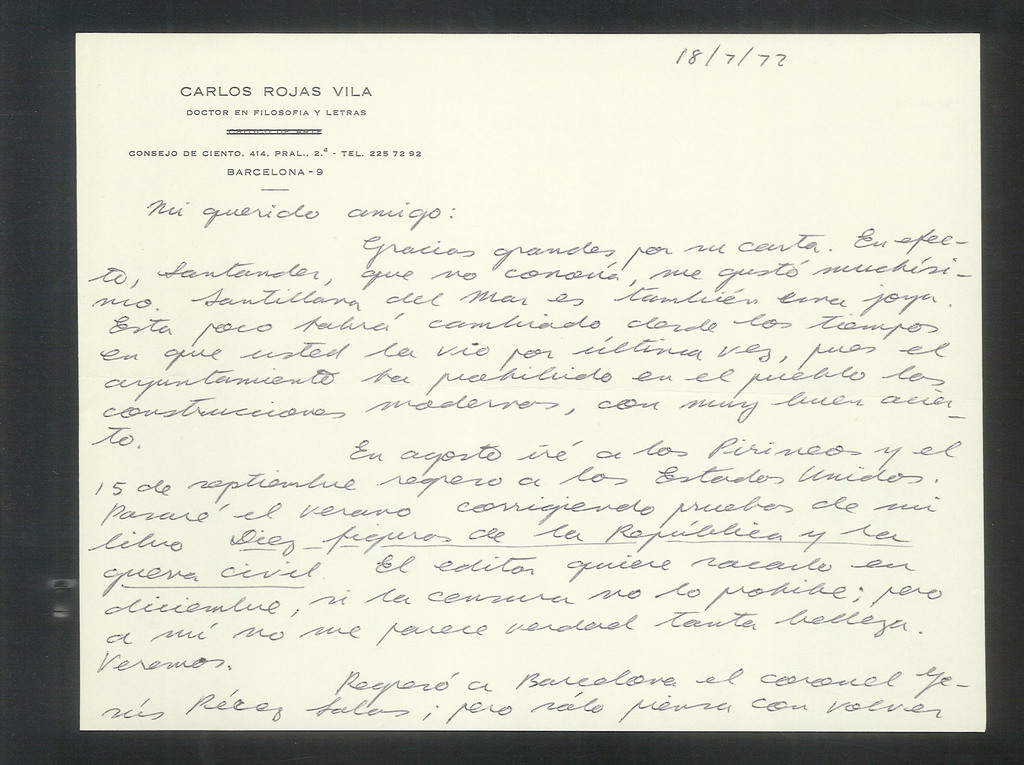 18/7/72
CARLOS ROJAS VILA
DOCTOR EN FILOSOFIA Y LETRAS
CONSEJO DE CIENTO, 414, PRAL., 2.ª - TEL. 225 72 92
BARCELONA - 9
Mi querido amigo:
Gracias grandes por su carta. En efec-
to, Santander, que no conocía, me gustó muchísi-
mo. Santillana del Mar es también una joya.
Esta poco habrá cambiado desde los tiempos
en que usted la vio por última vez, pues el
ayuntamiento ha prohibido en el pueblo las
construcciones modernas, con muy buen acier-
to.
En agosto iré a los Pirineos y el
15 de septiembre regreso a los Estados Unidos.
Pasaré el verano corrigiendo pruebas de mi
libro Diez figuras de la República y la
guerra civil. El editor quiere sacarlo en
diciembre, si la censura no lo prohibe; pero
a mí no me parece verdad tanta belleza.
Veremos.
Regresó a Barcelona el coronel Je-
sús Pérez Salas; pero sólo piensa con volver